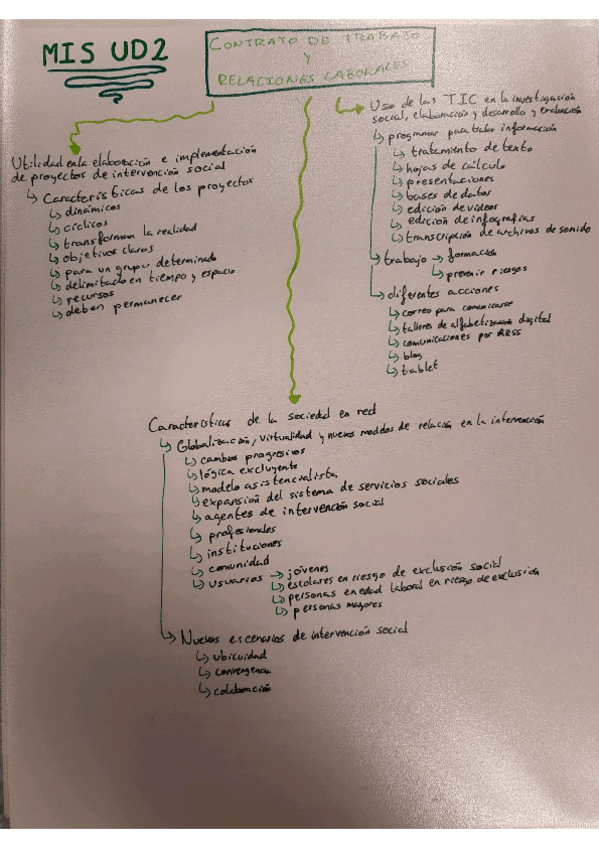 MIS UD2
CONTRATO DE TRABAJO
Y
RELACIONES LABORALES
Utilidad en la elaboración e implementación
de proyectos de intervención social
Características de los proyectos
dinámicos
cíclicos
transforman la realidad
objetivos claros
para un grupo determinado
delimitado en tiempo y espacio
recursos
deben permanecer
Uso de las TIC en la investigación
social, elaboración y desarrollo y evaluación
programas para tratar información
tratamiento de texto
hojas de cálculo
presentaciones
bases de datos
edición de vídeos
edición de infografías
transcripción de archivos de sonido
trabajo → formación
prevenir riesgos
diferentes acciones
correo para comunicarse
talleres de alfabetización digital
comunicaciones por RRSS
blog
tablet
Características de la sociedad en red
Globalización, virtualidad y nuevos modelos de relación en la intervención
cambios progresivos
lógica excluyente
modelo asistencialista
expansión del sistema de servicios sociales
agentes de intervención social
profesionales
instituciones
comunidad
usuarios → jóvenes
escolares en riesgo de exclusión social
personas en edad laboral en riesgo de exclusión
personas mayores
Nuevos escenarios de intervención social
ubicuidad
convergencia
colaboración